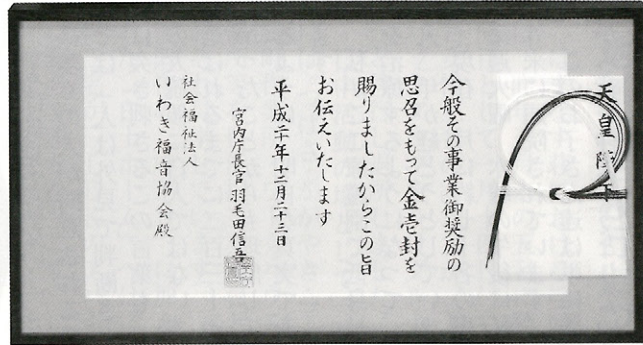 天皇陛下
今般その事業御奨励の
思召をもって金壱封を
賜りましたからこの旨
お伝えいたします
平成二十年十二月二十三日
宮内庁長官羽毛田信吾
社会福祉法人
いわき福音協会殿